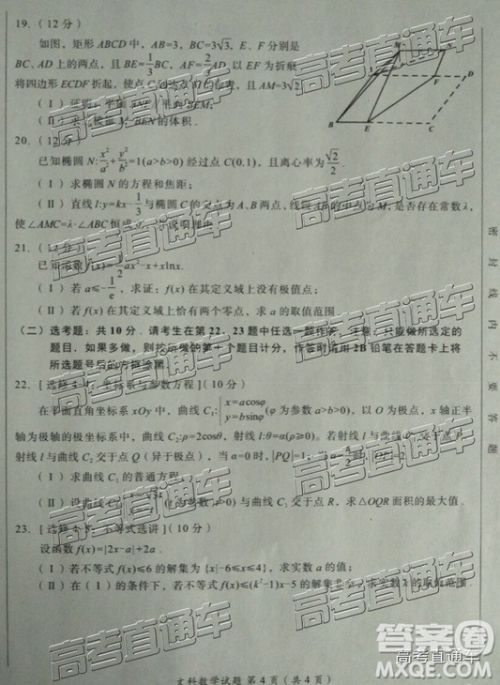 19.(12分)
如图,矩形ABCD中,AB=3,BC=3√3,E、F分别是
BC、AD上的两点,且BE=1/3BC,AF=2/3AD,以EF为折痕
将四边形ECDF折起,使点C
且AM=3√2
(Ⅰ)证明:平面
(Ⅱ)求 BEN的体积.
20.(12分)
已知椭圆N:x²/a²+y²/b²=1(a>b>0)经过点C(0,1),且离心率为√2/2
(Ⅰ)求椭圆N的方程和焦距;
(Ⅱ)直线l:y=kx-1/3与椭圆C的交点为A、B两点,线段AB的中点为M,是否存在常数λ,
使∠AMC=λ·∠ABC恒成立,
21.(12分)
已知函数f(x)=1/2ax²-x+xlnx.
(Ⅰ)若a≤-1/e,求证:f(x)在其定义域上没有极值点;
(Ⅱ)若f(x)在其定义域上恰有两个零点,求a的取值范围.
(二)选考题:共10分.请考生在第22、23题中任选一题作答,注意:只能做所选定的
题目.如果多做,则按所做的第一个题目计分,作答时请用2B铅笔在答题卡上将
所选题号后的方框涂黑.
22.[选修4-4:坐标系与参数方程](10分)
在平面直角坐标系xOy中,曲线C₁:{x=acosφ y=bsinφ(φ为参数,a>b>0),以O为极点,x轴正半
轴为极轴的极坐标系中,曲线C₂:ρ=2cosθ,射线l:θ=α(ρ≥0).若射线l与曲线C₁交于点P,
与曲线C₂交于点Q(异于极点),当α=0时,|PQ|=1;当α=
(Ⅰ)求曲线C₁的普通方程;
(Ⅱ)设曲线 与曲线C₂交于点R,求△OQR面积的最大值.
23.[选修4-5:不等式选讲](10分)
设函数f(x)=|2x-a|+2a.
(Ⅰ)若不等式f(x)≤6的解集为{x|-6≤x≤4},求实数a的值;
(Ⅱ)在(Ⅰ)的条件下,若不等式f(x)≤(k²-1)x-5的解集非空,求实数k的取值范围.
文科数学试题 第4页(共4页)
密封线内不要答题
M
F
D
B
E
C
高考直通车
高考直通车
高考直通车
高考直通车
高考直通车
高考直通车
答案圈
MXQE.COM